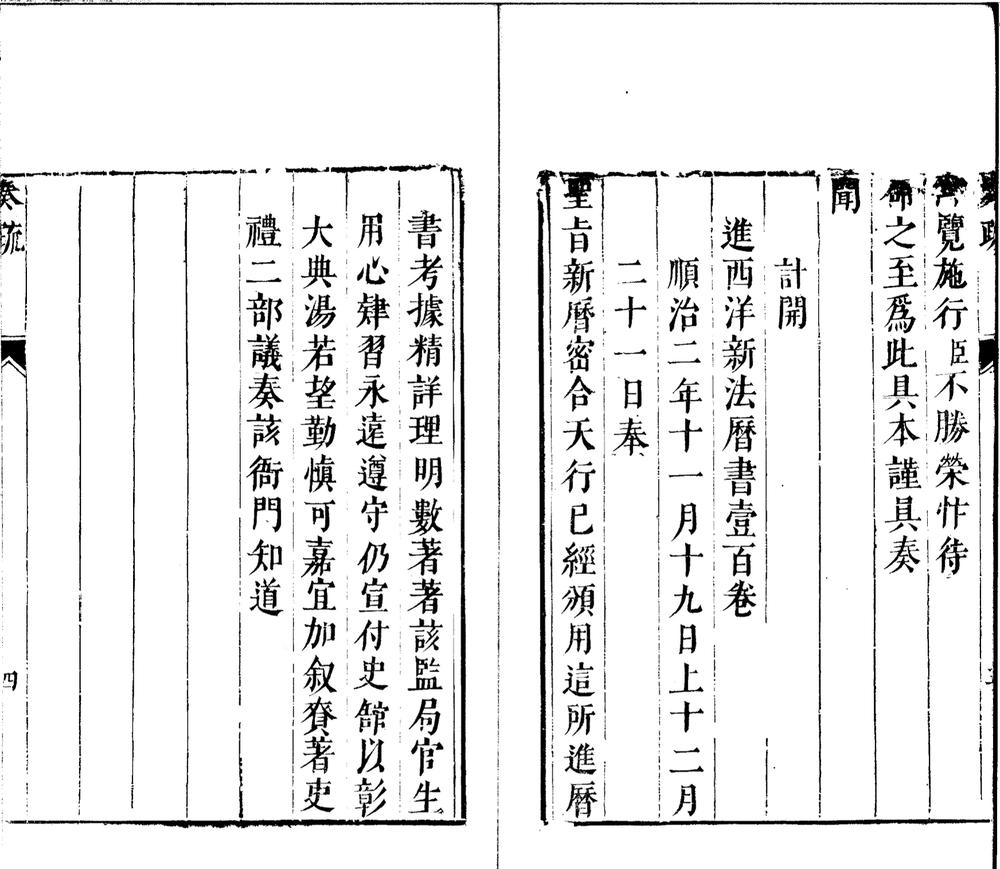 覽施行臣不勝榮忭待
命之至爲此具本謹具奏
聞
計開
進西洋新法曆書壹百卷
順治二年十一月十九日上十二月
二十一日奉
聖旨新曆密合天行已經頒用這所進曆
書考據精詳理明數著著該監局官生
用心肄習永遠遵守仍宣付史館以彰
大典湯若望勤慎可嘉宜加叙賚著吏
禮二部議奏該衙門知道
奏疏
四